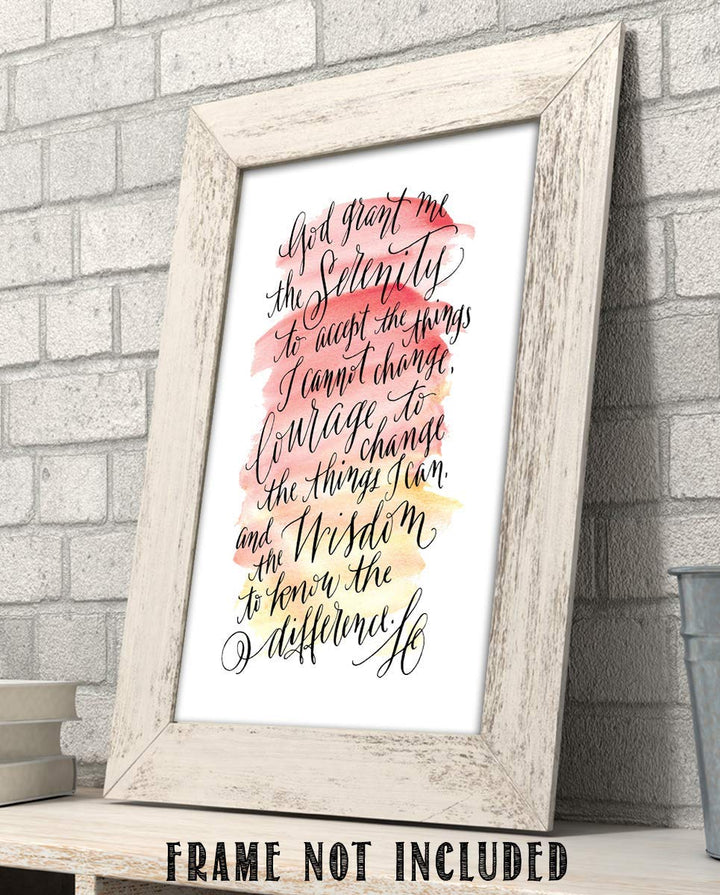 God grant me
the Serenity
to accept the things
I cannot change,
Courage to
change
the things I can,
and
the Wisdom
to know the
difference.
FRAME NOT INCLUDED